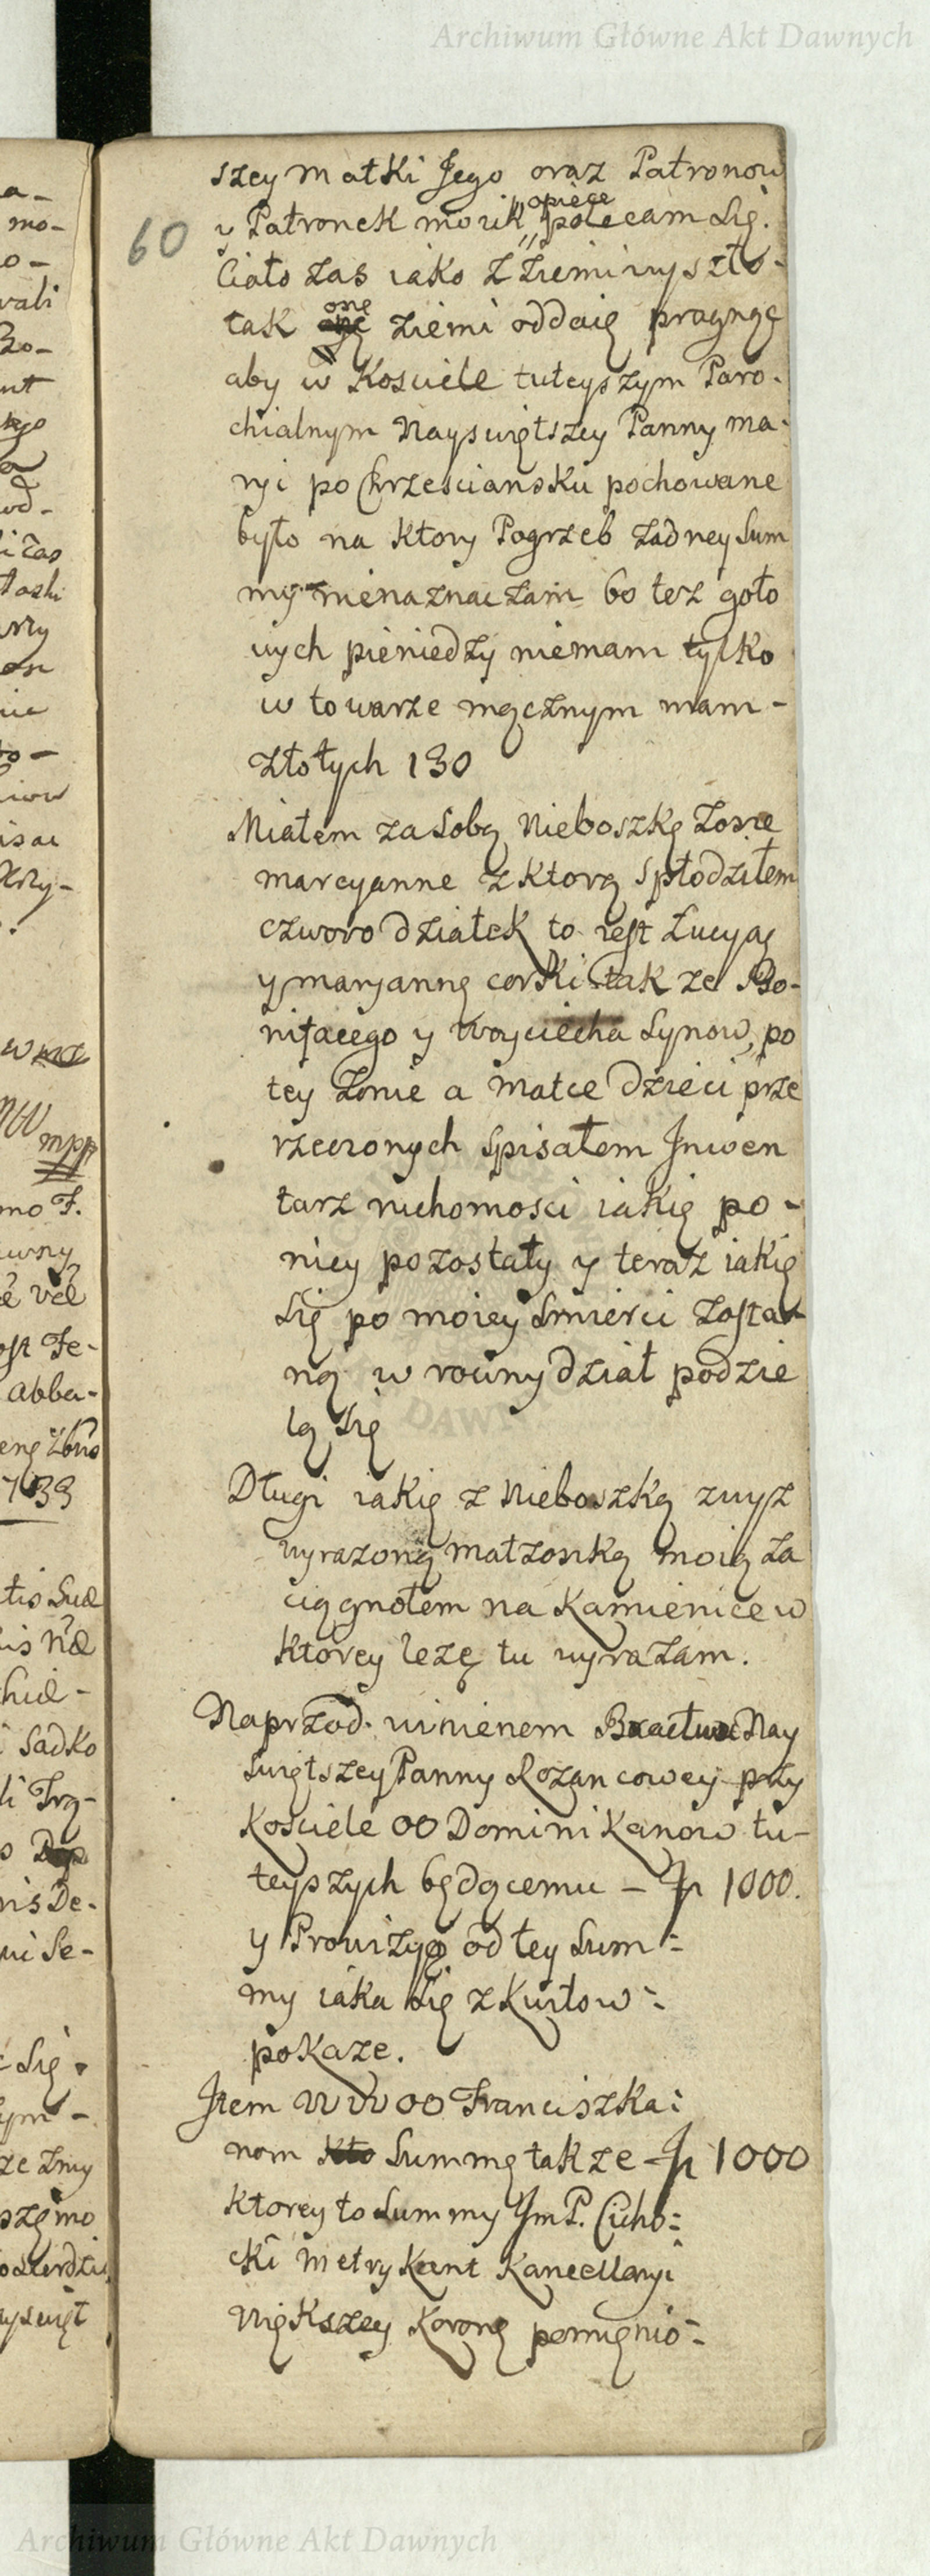 Archiwum Główne Akt Dawnych
60
szey Matki Jego oraz Patronow
y Patronek moich opiece polecam Się.
Ciało zas iako z ziemi wyszło-
tak one ziemi oddaię pragnąc
aby w Kosciele tuteyszym Paro-
chialnym Nayswiętszey Panny Ma-
ryi po Chrzesciansku pochowane
było na ktory Pogrzeb zadney Sum
my nienaznaczam bo tez goto
wych pieniedzy niemam tylko
w towarze mącznym mam -
złotych 130
Miałem za Sobą Nieboszkę Zonę
Marcyanne z ktorą Spłodziłem
czworo działek to iest Łucyą
y Maryannę corki tak ze Bo-
nifacego y Woyciecha Synow, po
tey Zonie a Matce Dzieci prze
rzeczonych Spisałem Jnwen
tarz ruchomosci iakie po -
niey pozostały y teraz iakie
Się po moiey Smierci zosta-
ną w rowny dział podzie
lą Się
Długi iakie z Nieboszką zwysz
wyrazoną małzonką moią za
ciągnołem na Kamienice w
ktorey lezę tu wyrazam.
Naprzod winienem Bractwu Nay
Swiętszey Panny Rozancowey przy
Kosciele OO Dominikanow tu-
teyszych będącemu - fl 1000.
y Prowizyą od tey Sum-
my iaka Się z Kwitow-
pokaze.
Jtem WW OO Franciszka-
nom Summę takze fl 1000
ktorey to Summy Jm P. Cicho-
cki Metrykant Kancellaryi
Większey Koronę pomienio-
Archiwum Główne Akt Dawnych